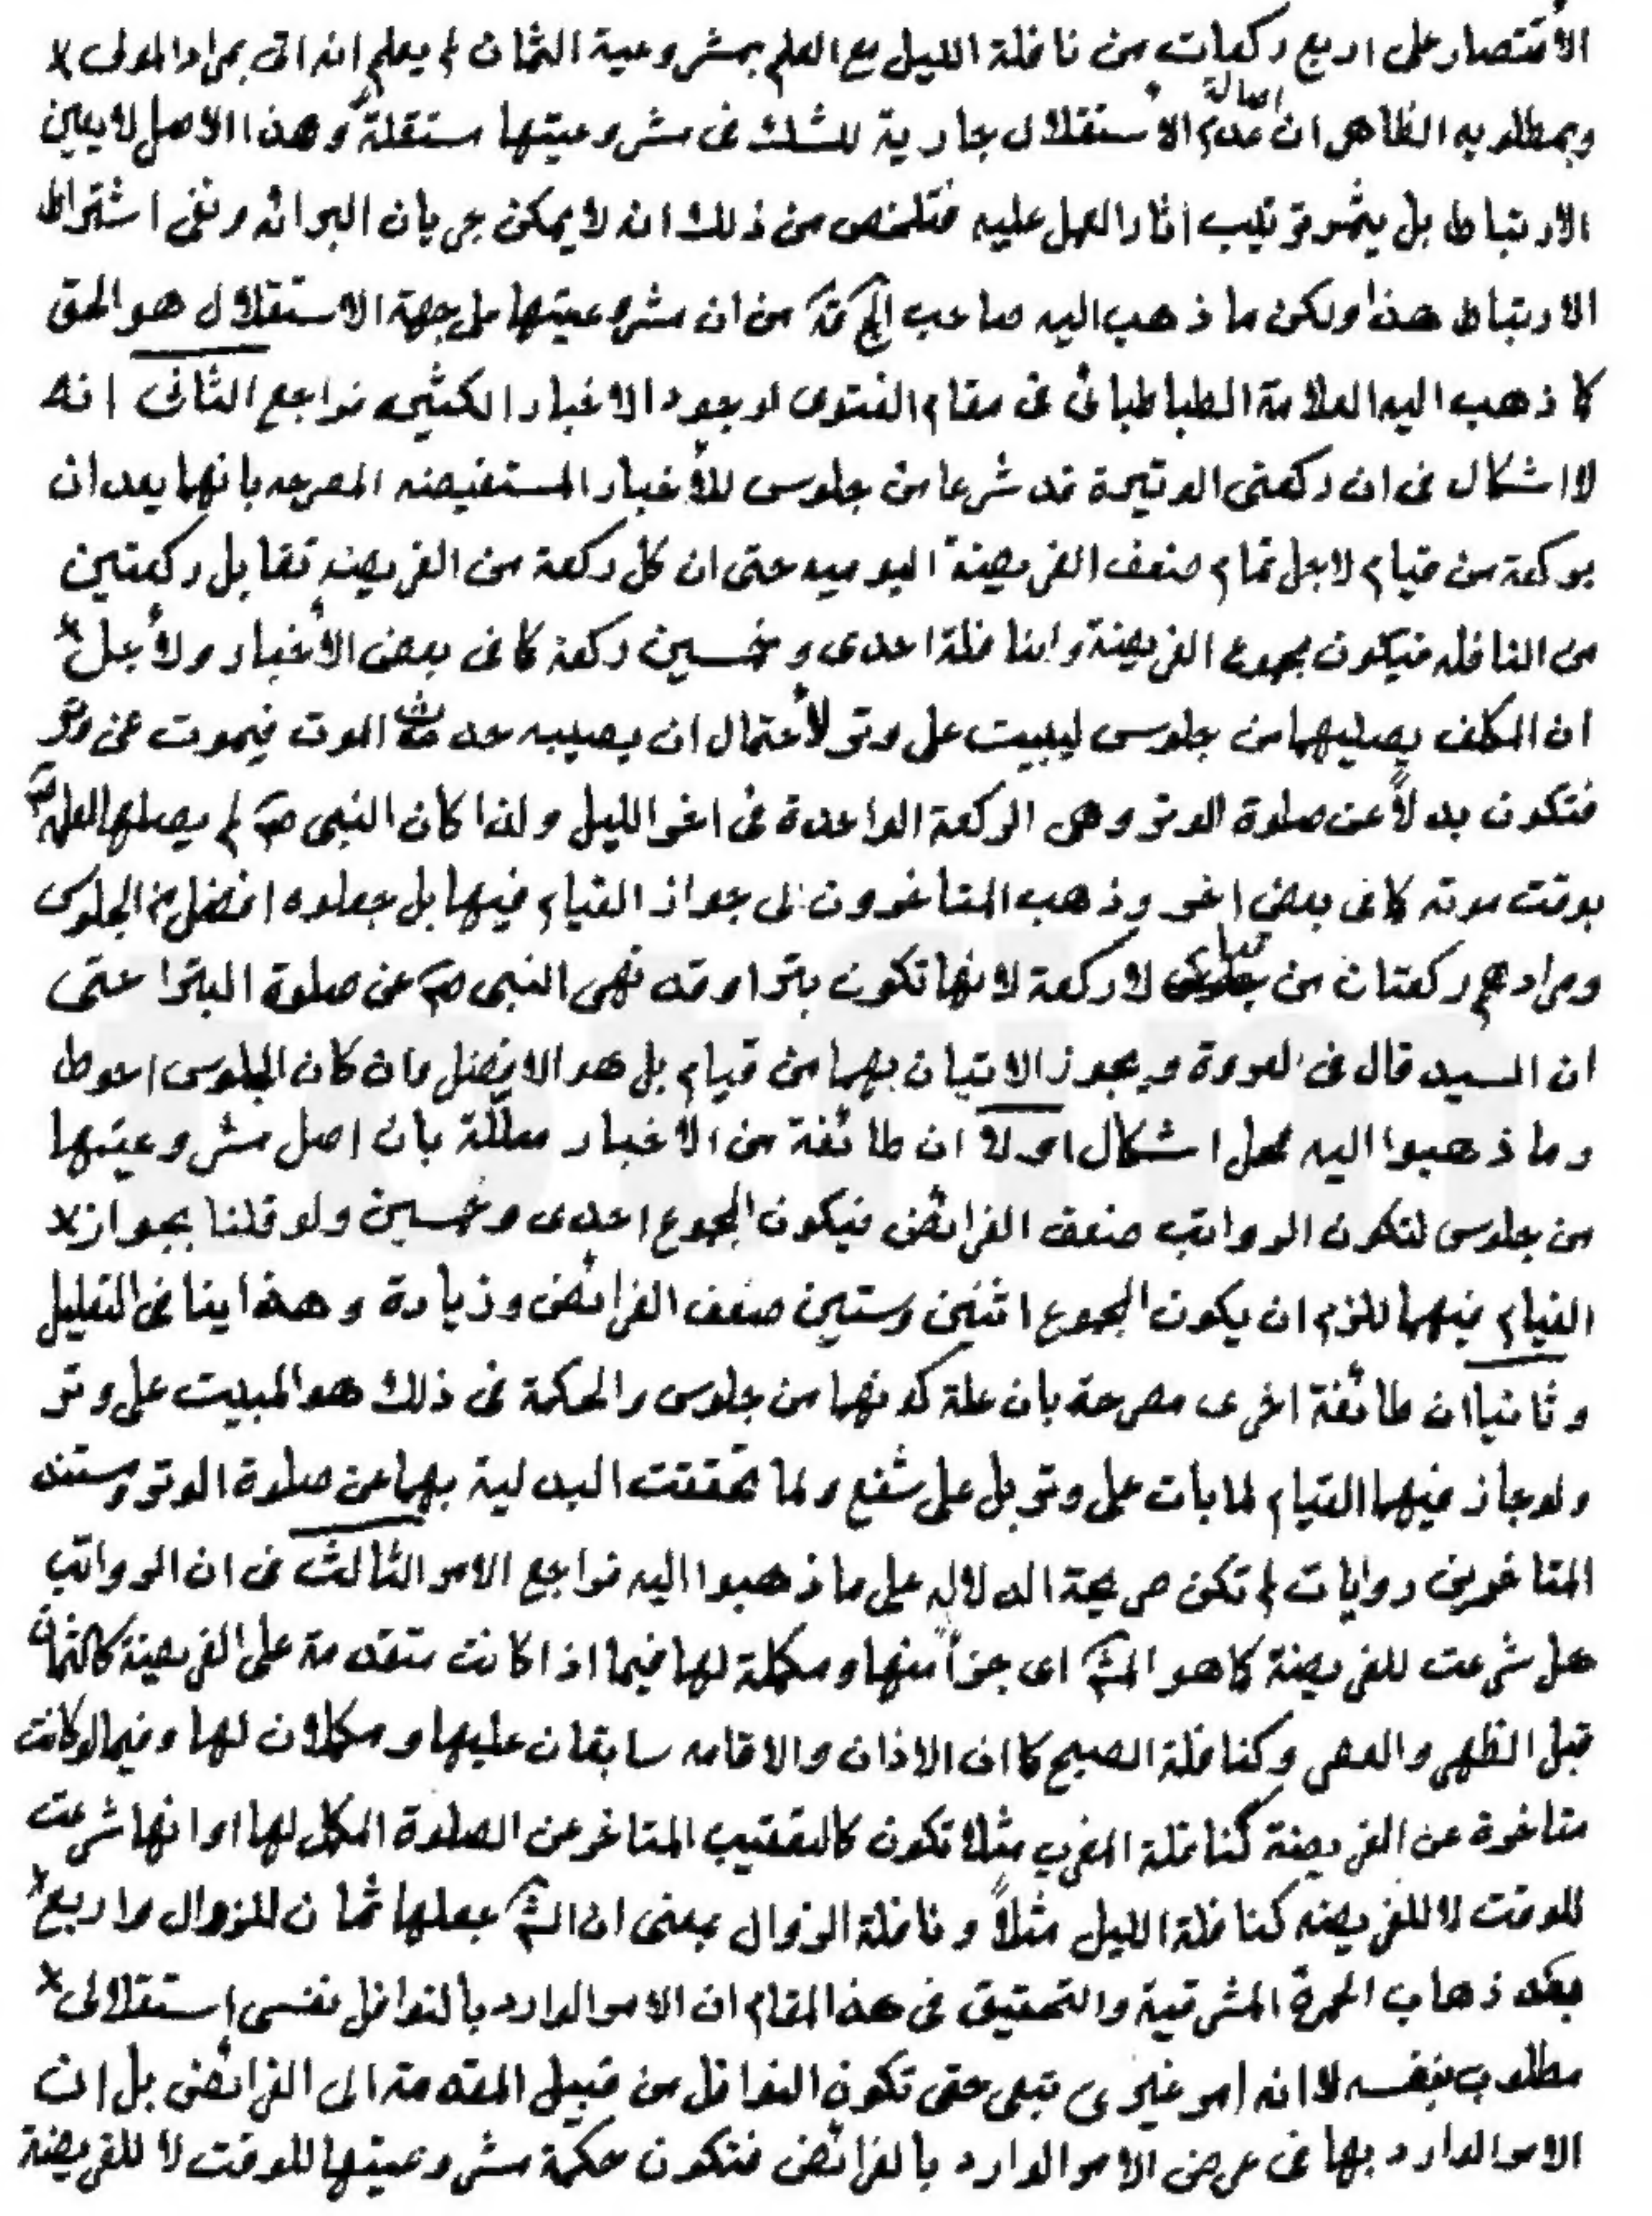 الاقتصار على اربع ركعات من نافلة الليل مع العلم بمشروعية الثمان لم يعلم انه اتى بمراد المولى
وبمطلوبه الظاهر ان اصالة عدم الاستقلال جارية للشك فى مشروعيتها مستقلة وهذا الاصل لا يعين
الارتباط بل يثمر ترتيب اثار العمل عليه فتلخص من ذلك انه لا يمكن جريان البرائه ونفى اشتراط
الارتباط هذا ولكن ما ذهب اليه صاحب من ان مشروعيتها على جهة الاستقلال هو الحق
كما ذهب اليه العلامة الطباطبائى فى مقام الفتوى لوجود الاخبار الكثيره فراجع الثانى انه
لا اشكال فى ان ركعتى الوتيرة قد شرعا من جلوس للأخبار المستفيضه المصرحه بانهما يعدان
بركعة من قيام لاجل تمام ضعف الفريضة اليوميه حتى ان كل ركعة من الفريضه تقابل ركعتين
من النافله فيكون مجموع الفريضة والنافلة احدى وخمسين ركعة كما فى بعض الأخبار ولأجل
ان المكلف يصليهما من جلوس ليبيت على وتر لأحتمال ان يصيبه حدث الموت فيموت عن وتر
فتكون بدلاً عن صلوة الوتر وهى الركعة الواحدة فى اخر الليل ولذا كان النبى ص لم يصلها لعلمه
بوقت موته كما فى بعض اخر وذهب المتاخرون الى جواز القيام فيها بل جعلوه افضل من الجلوس
ومرادهم ركعتان من قيام لا ركعة لانها تكون بترا وقد نهى النبى ص عن صلوة البترا حتى
ان السيد قال فى العروة ويجوز الاتيان بهما من قيام بل هو الافضل وان كان الجلوس احوط
وما ذهبوا اليه محل اشكال اولا ان طائفة من الاخبار معللة بان اصل مشروعيتها
من جلوس لتكون الرواتب ضعف الفرائض فيكون المجموع احدى وخمسين ولو قلنا بجواز
القيام فيهما للزم ان يكون المجموع اثنين وستين ضعف الفرائض وزيادة وهذا ينافى التعليل
وثانيا ان طائفة اخرى مصرحة بان علة كونهما من جلوس والحكمة فى ذلك هو المبيت على وتر
ولو جاز فيهما القيام لما بات على وتر بل على شفع ولما تحققت البدلية بهما عن صلوة الوتر ومستند
المتاخرين روايات لم تكن صريحة الدلاله على ما ذهبوا اليه فراجع الامر الثالث فى ان الرواتب
هل شرعت للفريضة كما هو المش اى جزأ منها ومكملة لها فيما اذا كانت متقدمة على الفريضة كالثمان
قبل الظهر والعصر وكنافلة الصبح كما ان الاذان والاقامه سابقان عليها ومكملان لها وفيما لو كانت
متاخرة عن الفريضة كنافلة المغرب مثلا تكون كالتعقيب المتاخر عن الصلوة المكمل لها او انها شرعت
للوقت لا للفريضه كنافلة الليل مثلاً ونافلة الزوال بمعنى ان الش جعلها ثمان للزوال واربع
بعد ذهاب الحمرة المشرقية والتحقيق فى هذا المقام ان الامر الوارد بالنوافل نفسى استقلالى
مطلوب بنفسه لا انه امر غيرى تبعى حتى تكون النوافل من قبيل المقدمة الى الفرائض بل ان
الامر الوارد بها فى عرض الامر الوارد بالفرائض فتكون حكمة مشروعيتها للوقت لا للفريضة